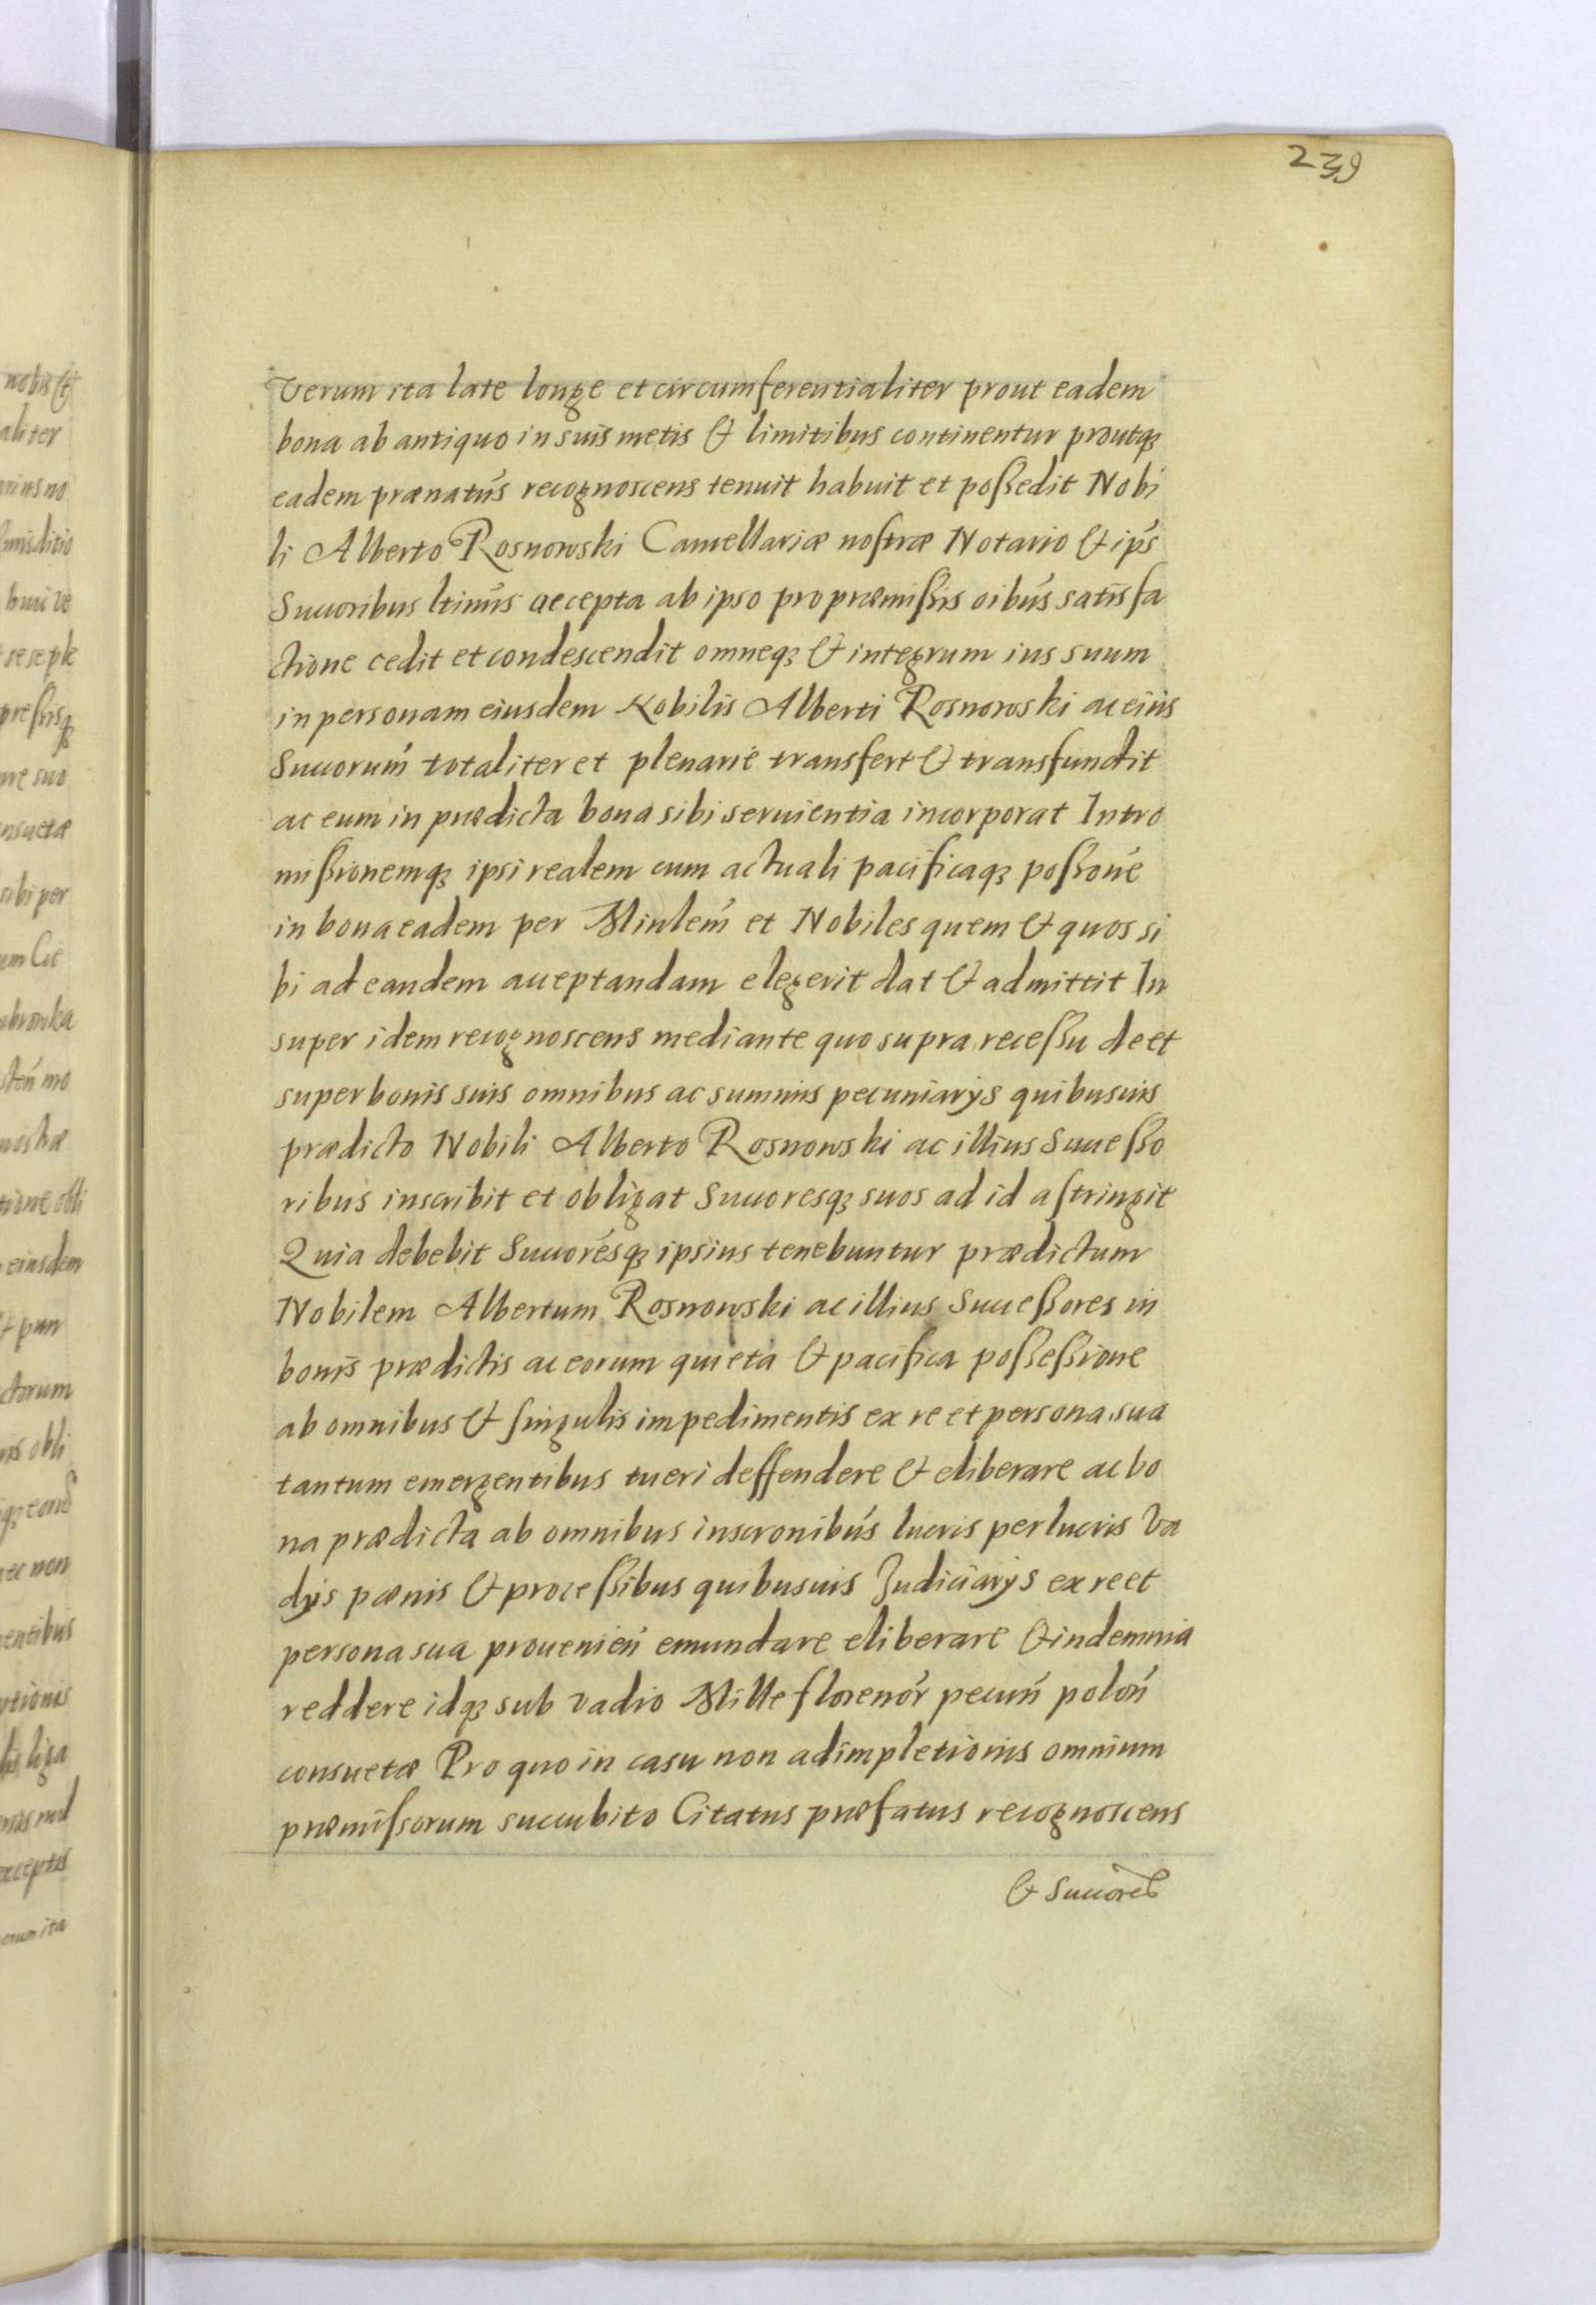 239
Verum ita late longe et circumferentialiter prout eadem
bona ab antiquo in suis metis & limitibus continentur proutq3
eadem prænatus recognoscens tenuit habuit et possedit Nobi
li Alberto Rosnowski Cancellariæ nostræ Notario & ips
Succoribus ltimis accepta ab ipso pro præmissis oibus satisfa
ctione cedit et condescendit omneq3 & integrum ius suum
in personam eiusdem Nobilis Alberti Rosnowski ac eius
Succorum totaliter et plenarie transfert & transfundit
ac eum in prædicta bona sibi seruientia incorporat Intro
missionemq3 ipsi realem cum actuali pacificaq3 possone
in bona eadem per Minlem et Nobiles quem & quos si
bi ad eandem acceptandam elegerit dat & admittit In
super idem recognoscens mediante quo supra recessu de et
super bonis suis omnibus ac summis pecuniarys quibusuis
prædicto Nobili Alberto Rosnowski ac illius Successo
ribus inscribit et obligat Succoresq3 suos ad id astringit
Quia debebit Succoresq3 ipsius tenebuntur prædictum
Nobilem Albertum Rosnowski ac illius Successores in
bonis prædictis ac eorum quieta & pacifica possessione
ab omnibus & singulis impedimentis ex re et persona sua
tantum emergentibus tueri deffendere & eliberare ac bo
na prædicta ab omnibus inscronibus lucris perlucris va
dys pænis & processibus quibusuis Judiciarys ex re et
persona sua prouenien emundare eliberare & indemnia
reddere idq3 sub vadio Mille florenor pecun polon
consuetæ Pro quo in casu non adimpletionis omnium
præmissorum succubito Citatus præfatus recognoscens
& Succores